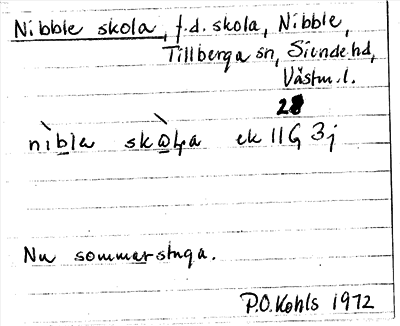 Nibble skola, f.d. skola, Nibble,
Tillberga sn, Siende hd,
Västm. l.
28
nìbla skòla ek 11G 3j
Nu sommarstuga.
P.O. Kohls 1972